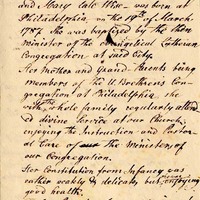 and Mary late Wise. was born at
Philadelphia, on the 19th of March
1787. She was baptized by the then
minister of the evangelical Lutheran
Congregation at said City.
Her Mother and Grand Parents being
members of the U. Brethren's Con-
gregation at Philadelphia, she
with the whole family regularly attend
ed divine Service at our Church,
enjoying the Instruction and Pastor
al Care of the Ministers of
our Congregation.
Her Constitution from Infancy was
rather weakly & delicate, but enjoying
good health,